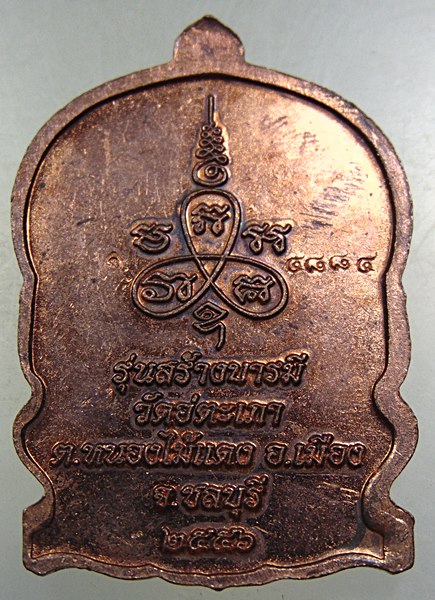 ๕๘๘๔
รุ่นสร้างบารมี
วัดอู่ตะเภา
ต.หนองไม้แดง อ.เมือง
จ.ชลบุรี
๒๕๕๖